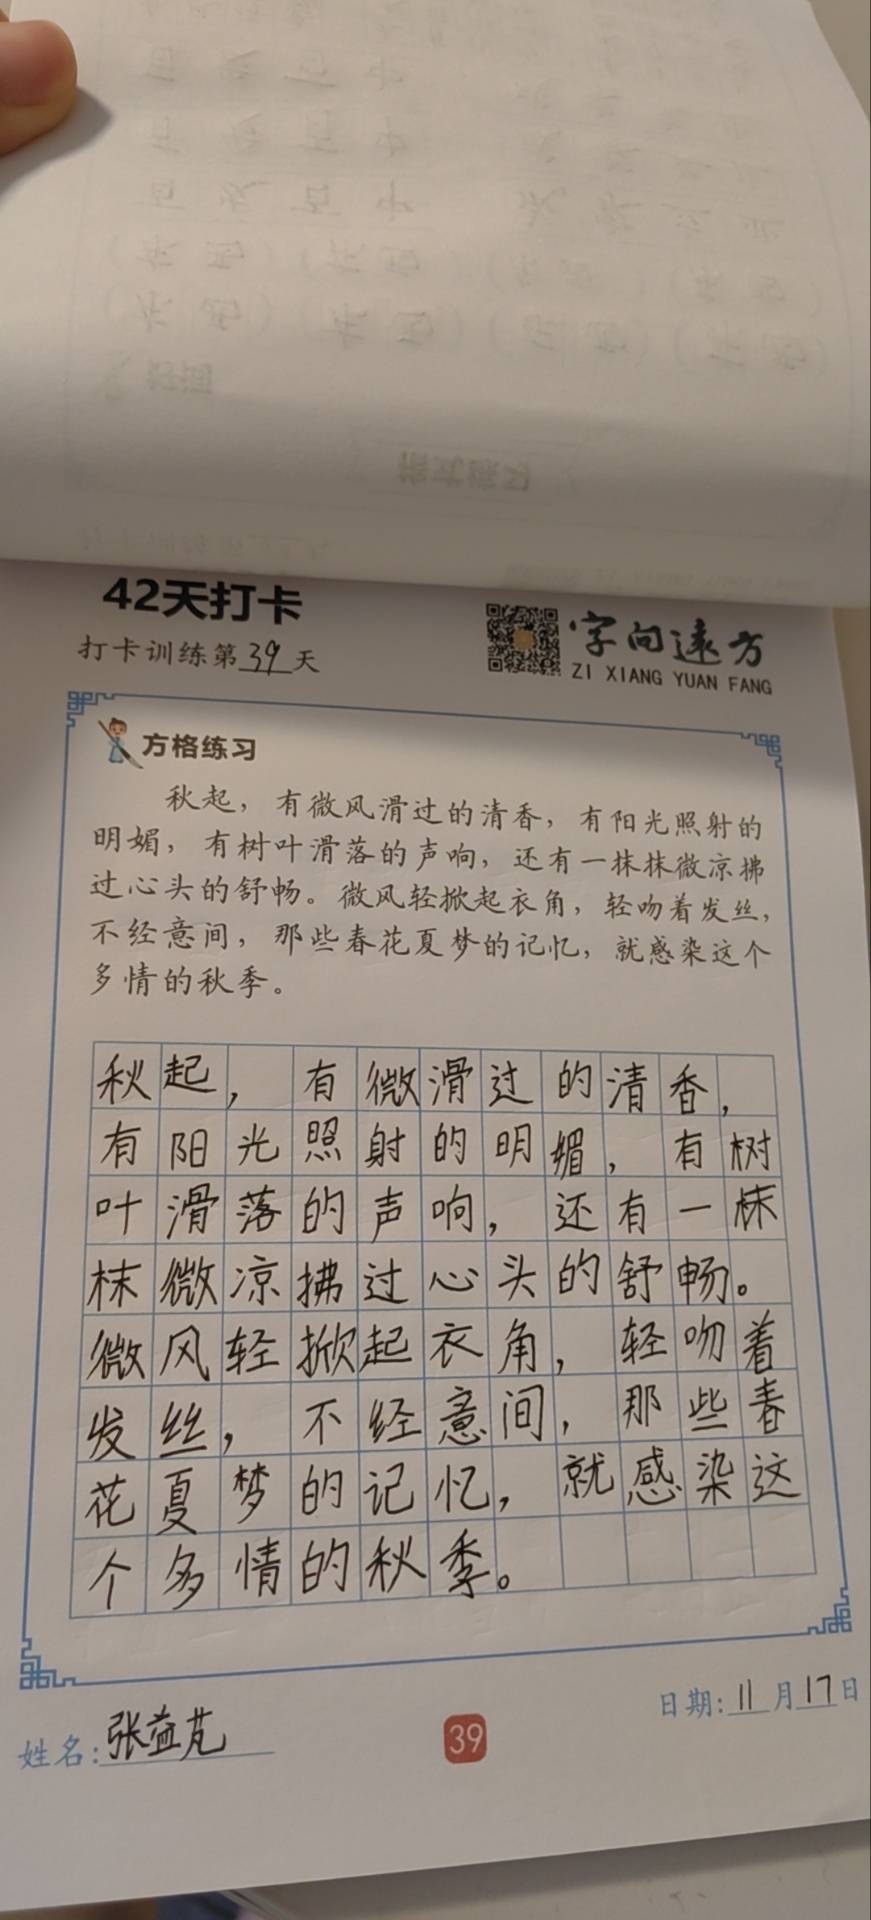 42天打卡
打卡训练第39天
字向远方
ZI XIANG YUAN FANG
方格练习
秋起，有微风滑过的清香，有阳光照射的
明媚，有树叶滑落的声响，还有一抹抹微凉拂
过心头的舒畅。微风轻掀起衣角，轻吻着发丝，
不经意间，那些春花夏梦的记忆，就感染这个
多情的秋季。
秋起，有微滑过的清香，
有阳光照射的明媚，有树
叶滑落的声响，还有一抹
抹微凉拂过心头的舒畅。
微风轻掀起衣角，轻吻着
发丝，不经意间，那些春
花夏梦的记忆，就感染这
个多情的秋季。
姓名：张益芃
39
日期：11月17日